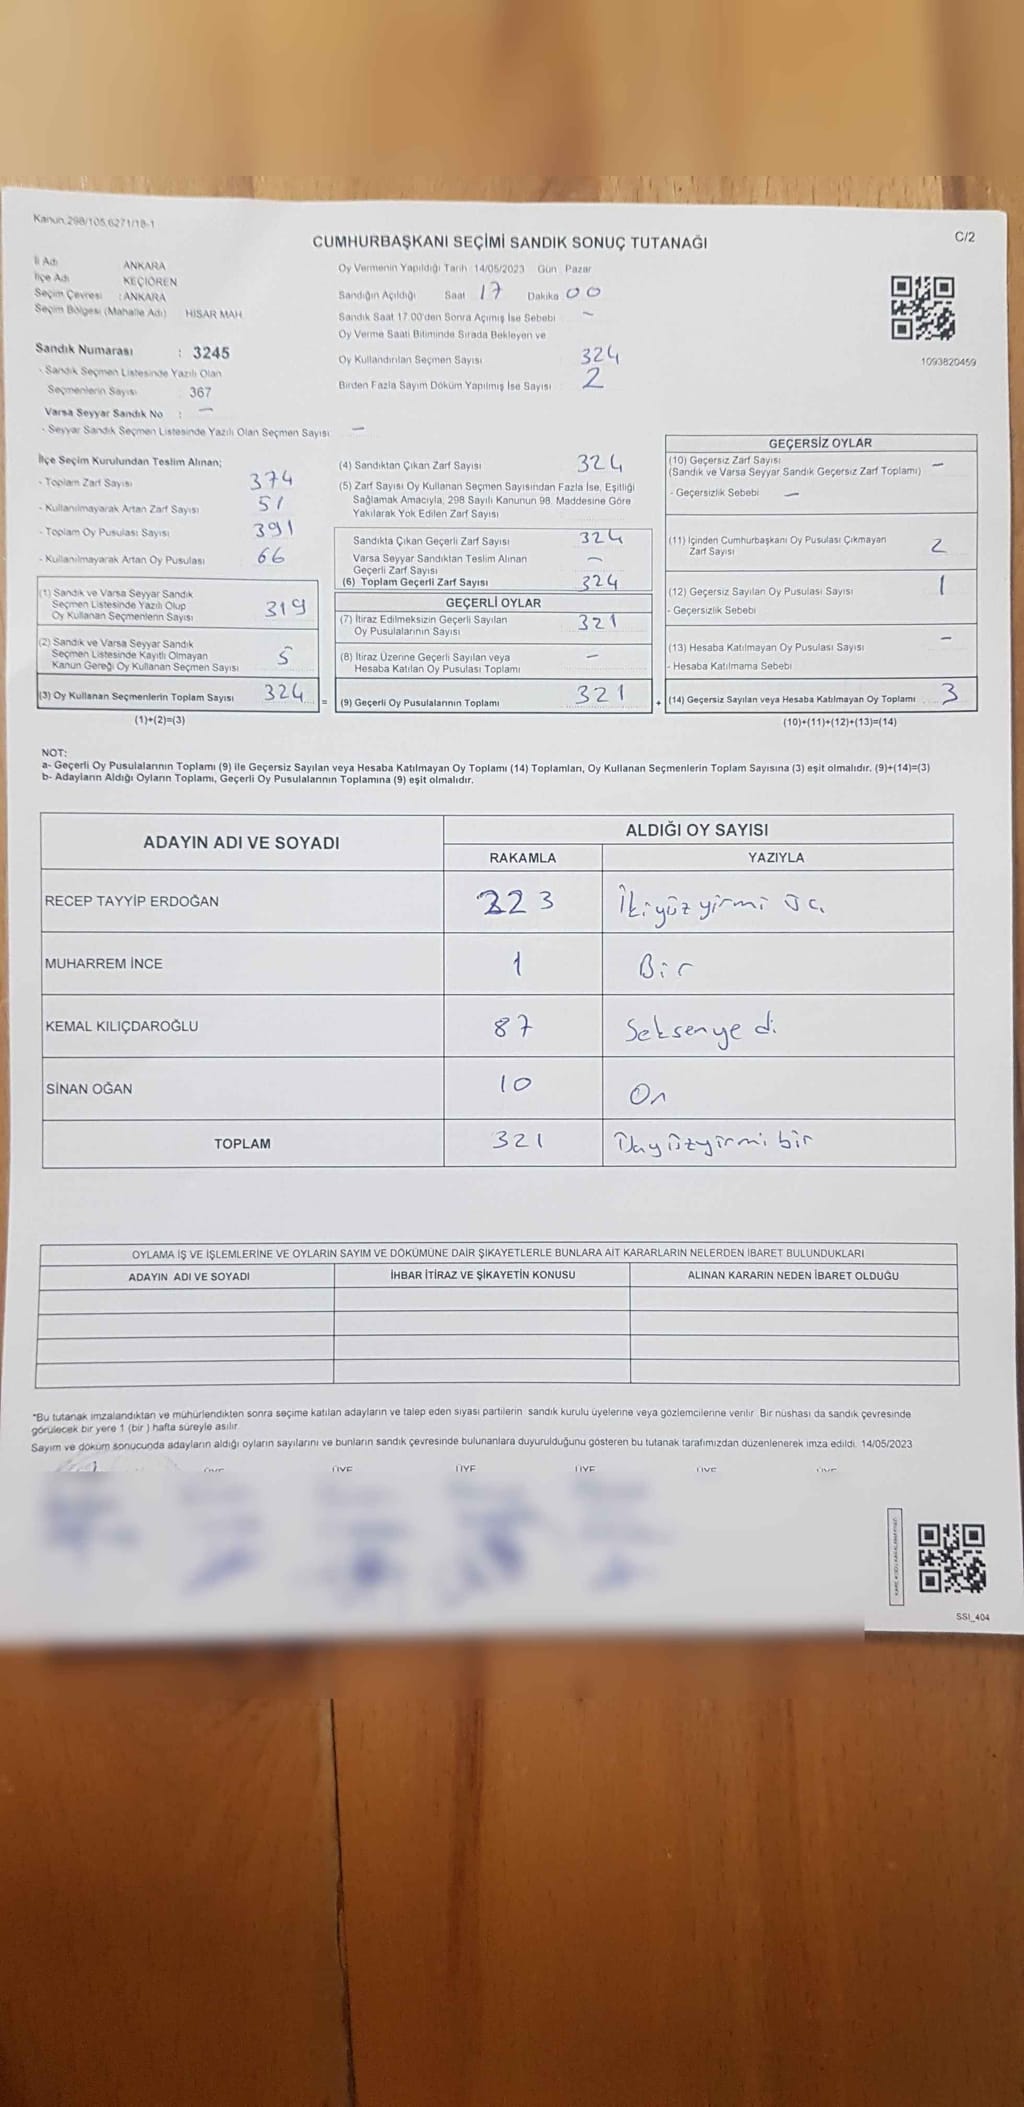 Kanun.298/105,6271/18-1
C/2
CUMHURBAŞKANI SEÇİMİ SANDIK SONUÇ TUTANAĞI
İl Adı ANKARA
İlçe Adı KEÇİÖREN
Seçim Çevresi : ANKARA
Seçim Bölgesi (Mahalle Adı) HİSAR MAH
Sandık Numarası : 3245
- Sandık Seçmen Listesinde Yazılı Olan
Seçmenlerin Sayısı 367
Varsa Seyyar Sandık No : —
- Seyyar Sandık Seçmen Listesinde Yazılı Olan Seçmen Sayısı —
Oy Vermenin Yapıldığı Tarih : 14/05/2023 Gün : Pazar
Sandığın Açıldığı Saat 17 Dakika 00
Sandık Saat 17.00'den Sonra Açımış İse Sebebi –
Oy Verme Saati Bitiminde Sırada Bekleyen ve
Oy Kullandırılan Seçmen Sayısı 324
Birden Fazla Sayım Döküm Yapılmış İse Sayısı 2
1093820459
İlçe Seçim Kurulundan Teslim Alınan;
- Toplam Zarf Sayısı 374
- Kullanılmayarak Artan Zarf Sayısı 51
- Toplam Oy Pusulası Sayısı 391
- Kullanılmayarak Artan Oy Pusulası 66
(1) Sandık ve Varsa Seyyar Sandık
Seçmen Listesinde Yazılı Olup
Oy Kullanan Seçmenlerin Sayısı 319
(2) Sandık ve Varsa Seyyar Sandık
Seçmen Listesinde Kayıtlı Olmayan
Kanun Gereği Oy Kullanan Seçmen Sayısı 5
(3) Oy Kullanan Seçmenlerin Toplam Sayısı 324 =
(1)+(2)=(3)
(4) Sandıktan Çıkan Zarf Sayısı 324
(5) Zarf Sayısı Oy Kullanan Seçmen Sayısından Fazla İse, Eşitliği
Sağlamak Amacıyla, 298 Sayılı Kanunun 98. Maddesine Göre
Yakılarak Yok Edilen Zarf Sayısı
Sandıkta Çıkan Geçerli Zarf Sayısı 324
Varsa Seyyar Sandıktan Teslim Alınan
Geçerli Zarf Sayısı –
(6) Toplam Geçerli Zarf Sayısı 324
GEÇERLİ OYLAR
(7) İtiraz Edilmeksizin Geçerli Sayılan
Oy Pusulalarının Sayısı 321
(8) İtiraz Üzerine Geçerli Sayılan veya
Hesaba Katılan Oy Pusulası Toplamı –
(9) Geçerli Oy Pusulalarının Toplamı 321 +
GEÇERSİZ OYLAR
(10) Geçersiz Zarf Sayısı
(Sandık ve Varsa Seyyar Sandık Geçersiz Zarf Toplamı) –
- Geçersizlik Sebebi –
(11) İçinden Cumhurbaşkanı Oy Pusulası Çıkmayan
Zarf Sayısı 2
(12) Geçersiz Sayılan Oy Pusulası Sayısı 1
- Geçersizlik Sebebi
(13) Hesaba Katılmayan Oy Pusulası Sayısı –
- Hesaba Katılmama Sebebi
(14) Geçersiz Sayılan veya Hesaba Katılmayan Oy Toplamı 3
(10)+(11)+(12)+(13)=(14)
NOT:
a- Geçerli Oy Pusulalarının Toplamı (9) ile Geçersiz Sayılan veya Hesaba Katılmayan Oy Toplamı (14) Toplamları, Oy Kullanan Seçmenlerin Toplam Sayısına (3) eşit olmalıdır. (9)+(14)=(3)
b- Adayların Aldığı Oyların Toplamı, Geçerli Oy Pusulalarının Toplamına (9) eşit olmalıdır.
ADAYIN ADI VE SOYADI ALDIĞI OY SAYISI
RAKAMLA YAZIYLA
RECEP TAYYİP ERDOĞAN 223 İkiyüzyirmi üç
MUHARREM İNCE 1 Bir
KEMAL KILIÇDAROĞLU 87 Seksenyedi
SİNAN OĞAN 10 On
TOPLAM 321 Üçyüzyirmi bir
OYLAMA İŞ VE İŞLEMLERİNE VE OYLARIN SAYIM VE DÖKÜMÜNE DAİR ŞİKAYETLERLE BUNLARA AİT KARARLARIN NELERDEN İBARET BULUNDUKLARI
ADAYIN ADI VE SOYADI İHBAR İTİRAZ VE ŞİKAYETİN KONUSU ALINAN KARARIN NEDEN İBARET OLDUĞU
*Bu tutanak imzalandıktan ve mühürlendikten sonra seçime katılan adayların ve talep eden siyasi partilerin sandık kurulu üyelerine veya gözlemcilerine verilir. Bir nüshası da sandık çevresinde
görülecek bir yere 1 (bir ) hafta süreyle asılır.
Sayım ve döküm sonucunda adayların aldığı oyların sayılarını ve bunların sandık çevresinde bulunanlara duyurulduğunu gösteren bu tutanak tarafımızdan düzenlenerek imza edildi. 14/05/2023
ÜYE ÜYE ÜYE ÜYE ÜYE ÜYE
SSI_404